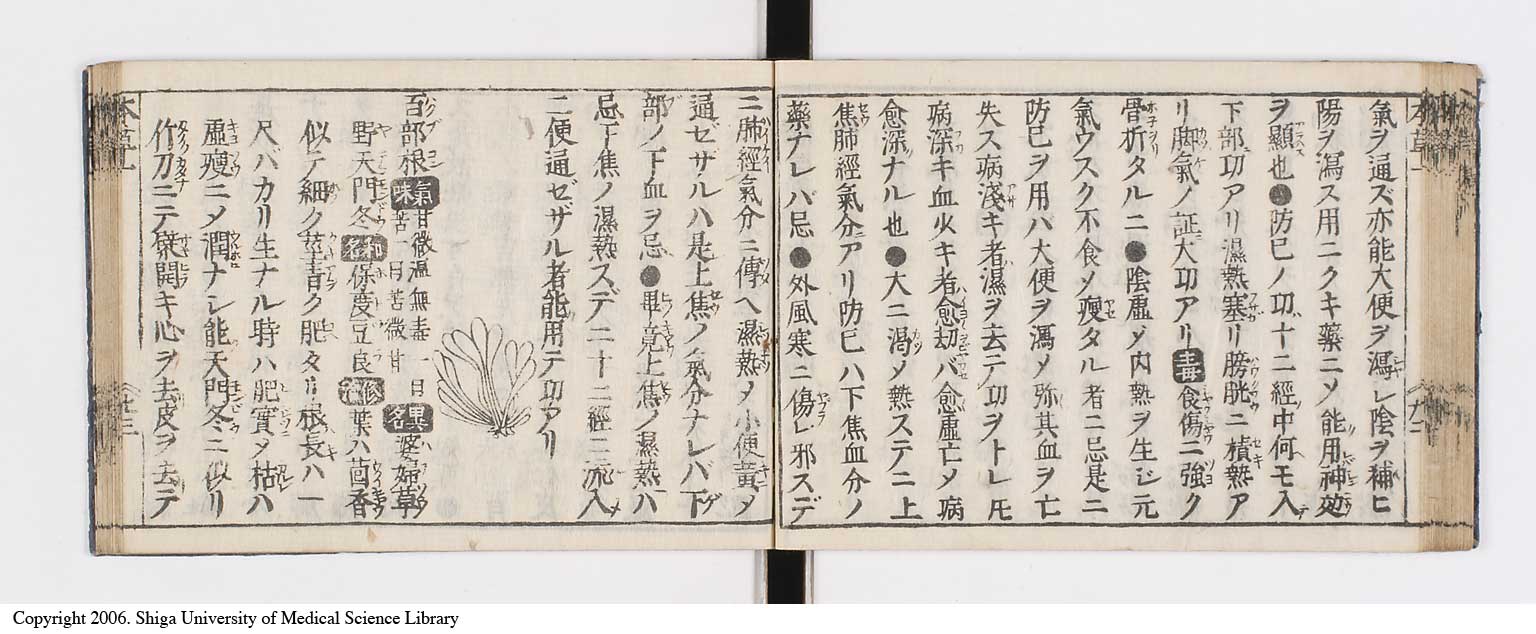 氣ヲ通ズ亦能大便ヲ瀉シ陰ヲ補ヒ
陽ヲ瀉ス用ニクキ藥ニメ能用神効
ヲ顯也●防已ノ功十二經中何モ入
下部功アリ濕熱塞リ膀胱ニ積熱ア
リ脚氣ノ証大功アリ毒食傷ニ強ク
骨折タルニ●陰虚メ内熱ヲ生ジ元
氣ウスク不食メ瘦タル者ニ忌是ニ
防已ヲ用バ大便ヲ瀉メ弥其血ヲ亡
失ス病淺キ者濕ヲ去テ功ヲトレ𪜈
病深キ血少キ者愈劫バ愈虚亡メ病
愈深ナル也●大ニ渇メ熱ステニ上
焦肺經氣分アリ防已ハ下焦血分ノ
藥ナレバ忌●外風寒ニ傷レ邪スデ
ニ肺經氣分ニ傳ヘ濕熱メ小便黄メ
通ゼザルハ是上焦ノ氣分ナレバ下
部ノ下血ヲ忌●畢竟上焦ノ濕熱ハ
忌下焦ノ濕熱スデニ十二經ニ流入
二便通ゼザル者能用テ功アリ
百部根 氣味 甘微温無毒一曰苦一曰苦微甘 異名 婆婦草
野天門冬 和名 保度豆良 修治 葉ハ茴香
似テ細ク莖青ク肥タリ根長ハ一
尺バカリ生ナル時ハ肥實メ枯ハ
虚瘦ニメ潤ナシ能天門冬ニ似リ
竹刀ニテ劈開キ心ヲ去皮ヲ去テ
本草一
廿三
Copyright 2006. Shiga University of Medical Science Library